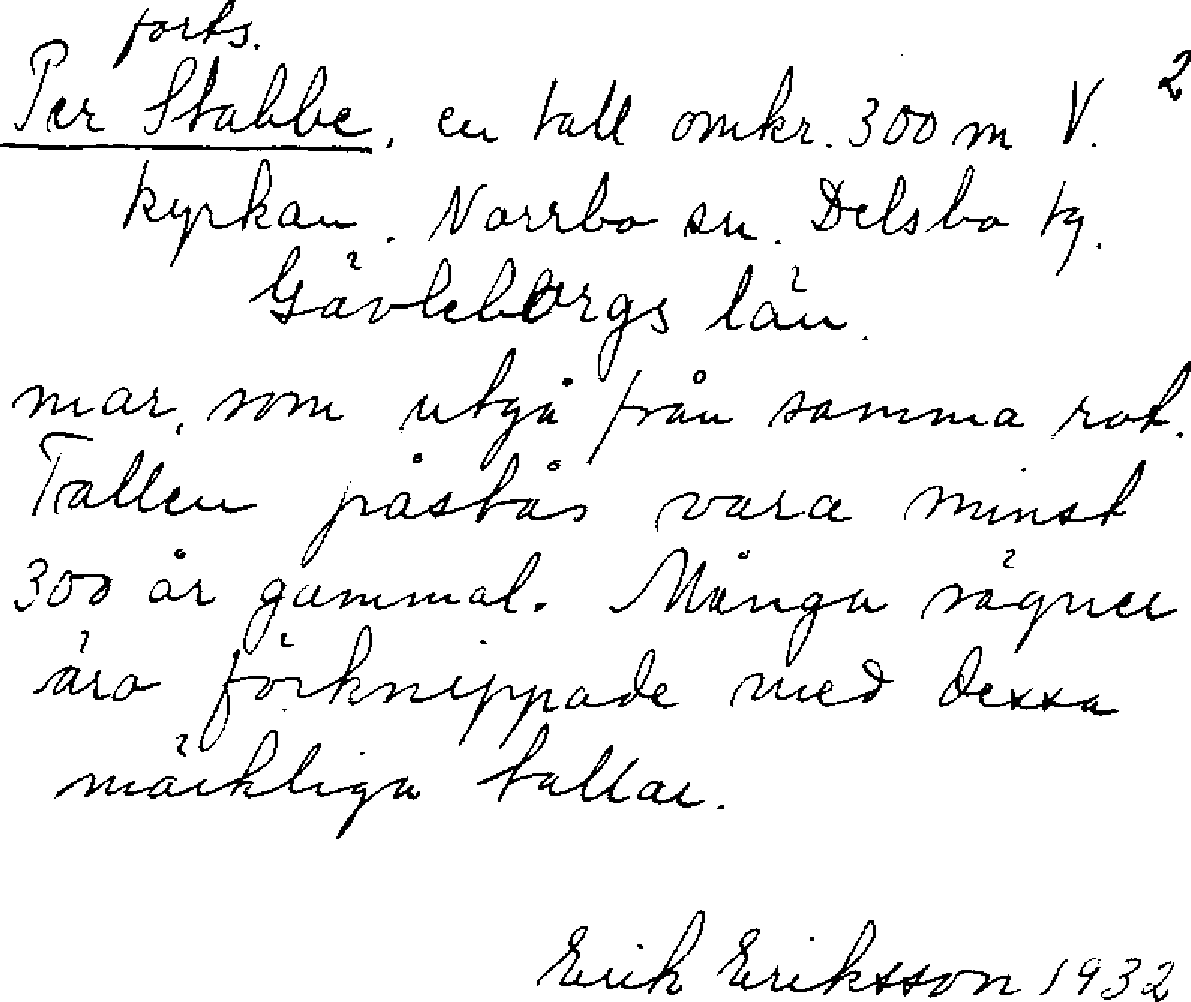 forts.
2
Per Stabbe, en tall omkr. 300 m V.
kyrkan. Norrbo sn. Delsbo tg.
Gävleborgs län.
mar, som utgå från samma rot.
Tallen påstås vara minst
300 år gammal. Många sägner
äro förknippade med dessa
märkliga tallar.
Erik Eriksson 1932